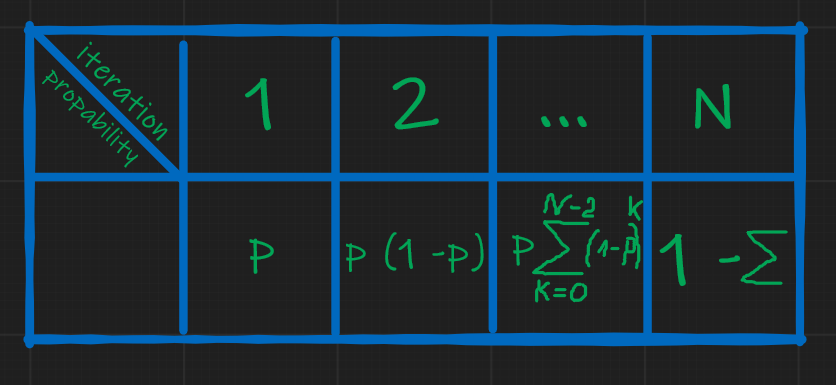 iteration
propability
1
2
...
N
p
p (1-p)
N-2
K
p∑(1-p)
K=0
1 -∑